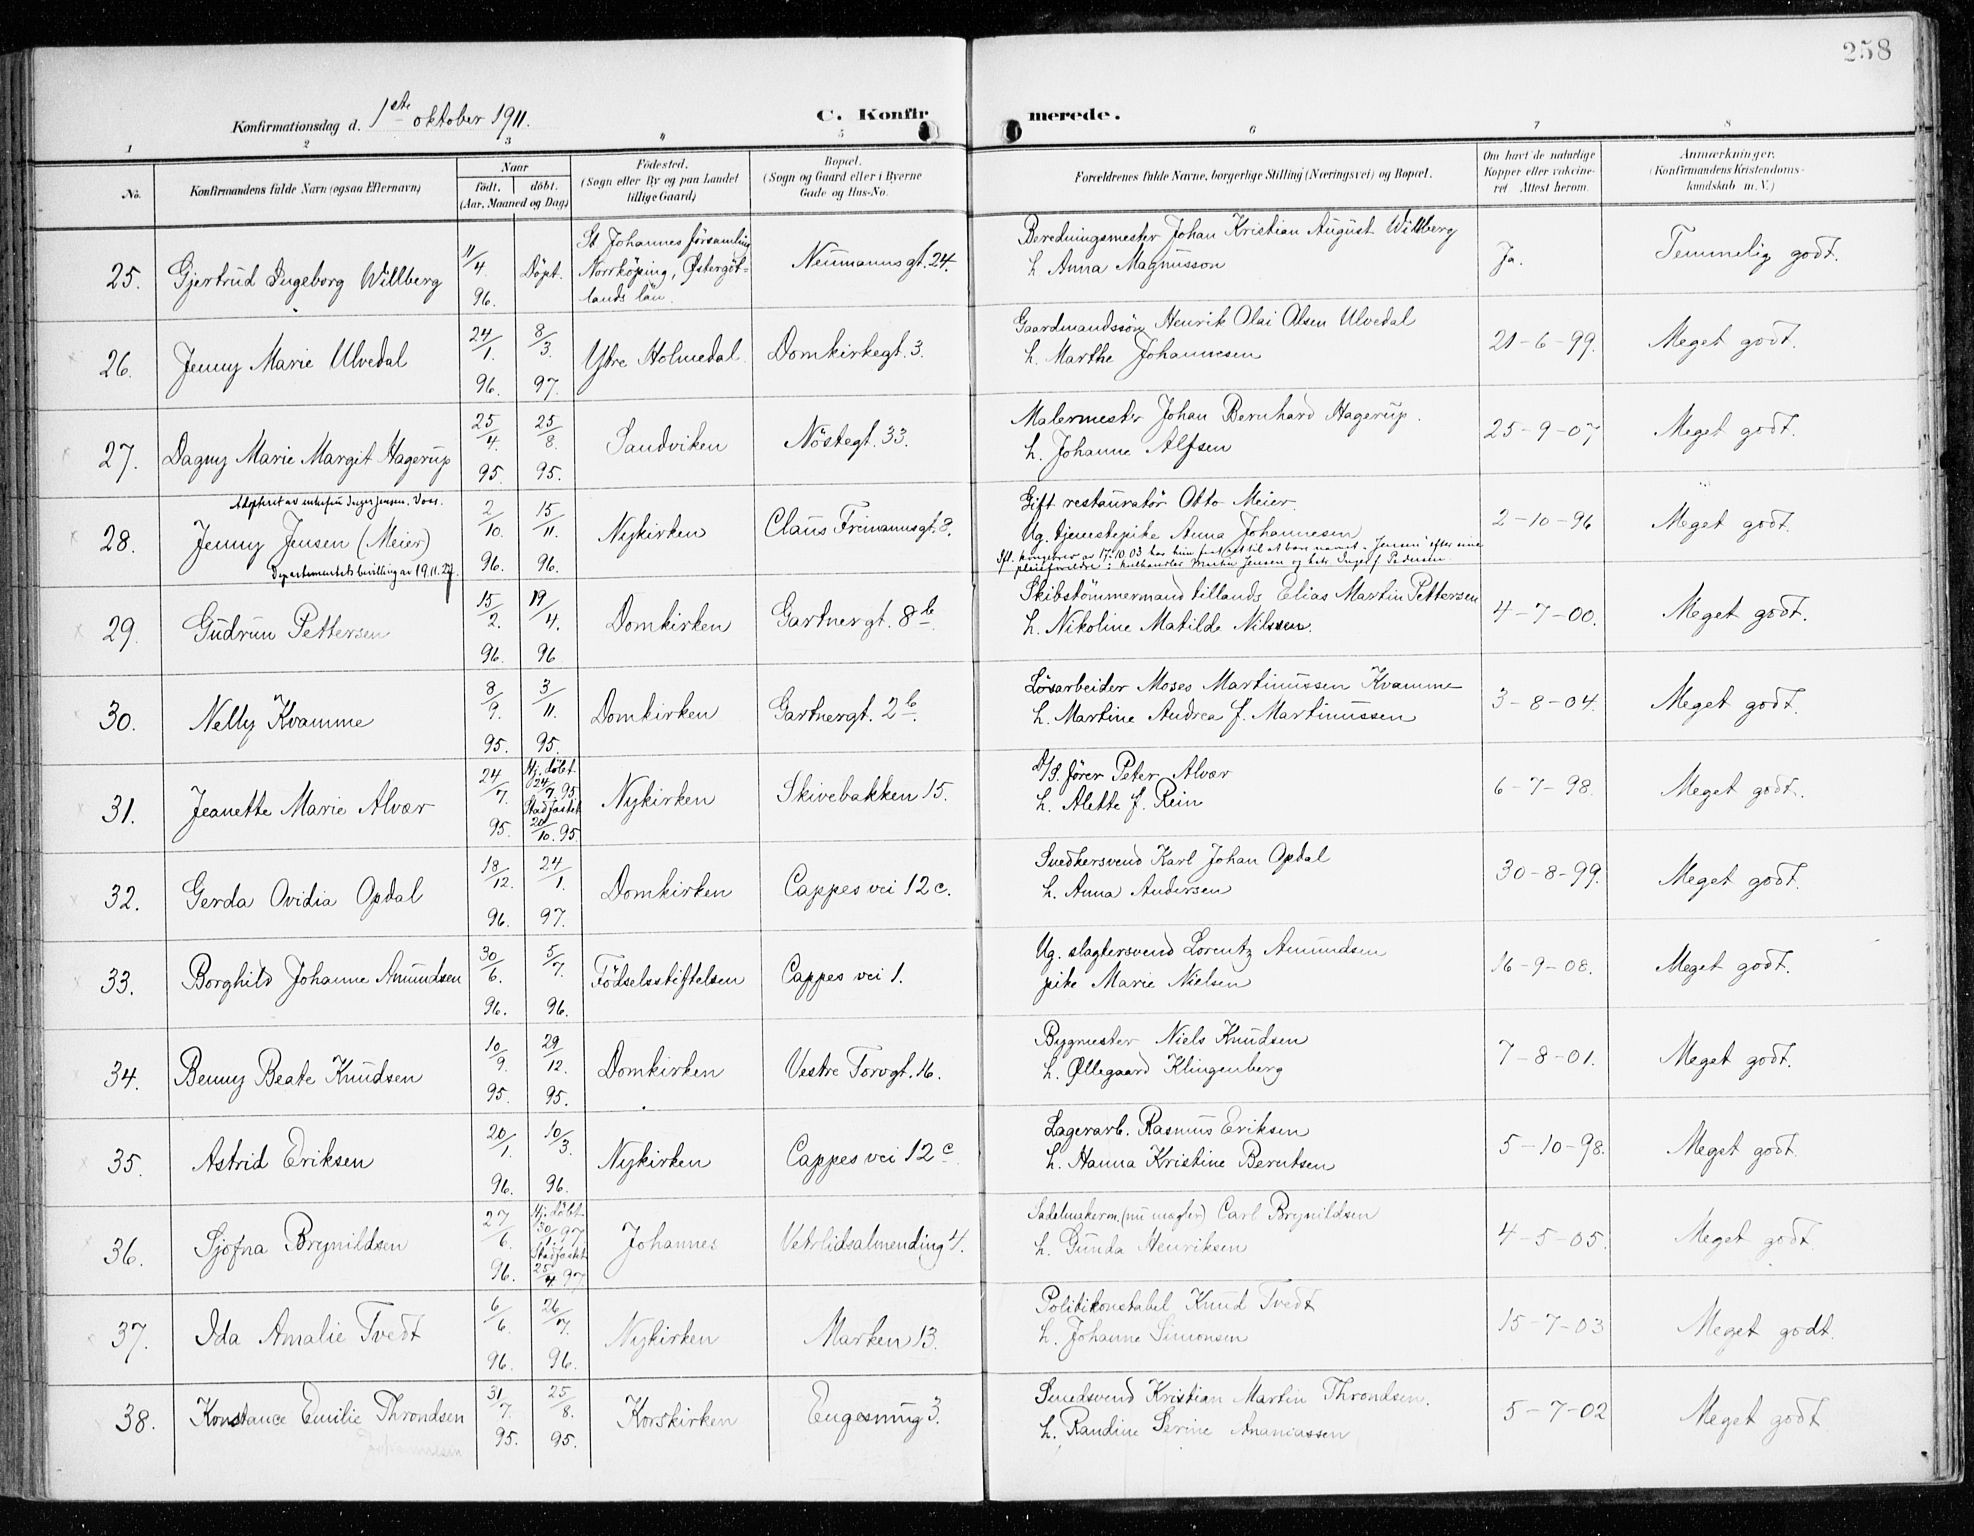 258
Konfirmationsdag d. 1ste oktober 1911.
C. Konfir
merede.
1 2 3 4 5 6 7 8
No.
Konfirmandens fulde Navn (ogsaa Efternavn)
Naar
födt. döbt.
(Aar, Maaned og Dag)
Födested.
(Sogn eller By og paa Landet
tillige Gaard)
Bopæl.
(Sogn og Gaard eller i Byerne
Gade og Hus-No.
Forældrenes fulde Navne, borgerlige Stilling (Næringsvei) og Bopæl.
Om havt de naturlige
Kopper eller vakcine-
ret. Attest herom.
Anmærkninger.
(Konfirmandens Kristendoms-
kundskab m. V.)
25. Gjertrud Ingeborg Willberg 11/4 96. Döpt. St Johannes församling Norrköping, Östergöt-lands län. Neumannsgt. 24. Beredningsmester Johan Kristian August Willberg
h. Anna Magnusson Ja. Temmelig godt.
26. Jenny Marie Ulvedal 24/1. 96. 8/3. 97. Ytre Holmedal. Domkirkegt. 3. Gaardmandssön Henrik Olai Olsen Ulvedal
h. Marthe Johannesen 21-6-99. Meget godt.
27. Dagny Marie Margit Hagerup 25/4. 95 25/8. 95. Sandviken Nöstegt. 33. Malermester Johan Bernhard Hagerup.
h. Johanne Alfsen 25-9-07 Meget godt.
Adopteret av enkefru Inger Jensen. Voss.
28. Jenny Jensen (Meier) 2/10. 96. 15/11. 96. Nykirken Claus Frimannsgt. 8. Gift restauratör Otto Meier.
Ug. tjenestepike Anna Johannesen 2-10-96 Meget godt.
Departementets bevilling av 19.11.27.
av 17.10.03 har hun faat ret til at bære navnet "Jensen" efter sine
pleieforældre: Kulhandler Martin Jensen og h. Inger f. Pedersen
29. Gudrun Pettersen 15/2. 96. 19/4. 96. Domkirken Gartnergt. 8b. Skibstömmermand tillands Elias Martin Pettersen
h. Nikoline Matilde Nilssen. 4-7-00. Meget godt.
30. Nelly Kvamme 8/9. 95. 3/11. 95. Domkirken Gartnergt. 2b. Lösarbeider Moses Martinussen Kvamme
h. Martine Andrea f. Martinussen 3-8-04. Meget godt.
31. Jeanette Marie Alvær 24/7. 95. Hj. döbt 24/7. 95 Stadfæstet 20/10. 95. Nykirken Skivebakken 15. D/S. förer Peter Alvær
h. Alette f. Rein 6-7-98. Meget godt.
32. Gerda Ovidia Opdal 18/12. 96. 24/1. 97. Domkirken Cappes vei 12 c. Snedkersvend Karl Johan Opdal
h. Anna Andersen 30-8-99. Meget godt.
33. Borghild Johanne Amundsen 30/6. 96. 5/7. 96. Födselsstiftelsen Cappes vei 1. Ug. slagtersvend Lorentz Amundsen
pike Marie Nielsen 16-9-08. Meget godt.
34. Benny Beate Knudsen 10/9. 95. 29/12. 95. Domkirken Vestre Torvgt. 16. Bygmester Niels Knudsen
h. Øllegaard Klingenberg 7-8-01. Meget godt.
35. Astrid Eriksen 20/1. 96. 10/3. 96. Nykirken Cappes vei 12 c. Lagerarb. Rasmus Eriksen
h. Hanna Kristine Berntsen 5-10-98. Meget godt.
36. Sjofna Brynildsen 27/6. 96. Hj. döbt 30/1. 97 Stadfæstet 25/4 97. Johannes Vetrlidsalmending 4. Sadelmakerm. (nu mægler) Carl Brynildsen
h. Gunda Henriksen 4-5-05. Meget godt
37. Ida Amalie Tvedt 6/6. 96. 26/7. 96. Nykirken Marken 13. Politikonstabel Knud Tvedt
h. Johanne Simonsen 15-7-03 Meget godt.
38. Konstance Emilie Throndsen 31/7. 95. 25/8. 95. Korskirken Engesmug 3. Smedsvend Kristian Martin Throndsen.
h. Randine Serine Ananiassen 5-7-02 Meget godt
Johannesen